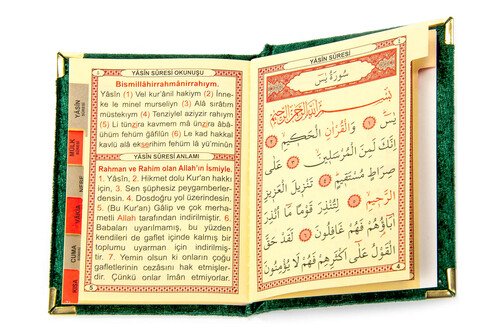 YÂSİN SÛRESİ OKUNUŞU
Bismillâhirrahmânirrahıym.
Yâsîn (1) Vel kur'ânil hakiym (2) İnne-
ke le minel murseliyn (3) Alâ sırâtım
müstekıym (4) Tenziylel aziyzir rahıym
(5) Li tünzira kavmem mâ ünzira âbâ-
ühüm fehüm ğâfilûn (6) Le kad hakkal
kavlü alâ ekserihim fehüm lâ yu'minûn
YÂSÎN SÛRESİ ANLAMI
Rahman ve Rahim olan Allah'ın İsmiyle.
1. Yâsîn, 2. Hikmet dolu Kur'an hakkı
için, 3. Sen şüphesiz peygamberler-
densin. 4. Dosdoğru yol üzerindesin.
5. (Bu Kur'an) Gâlip ve çok merha-
metli Allah tarafından indirilmiştir. 6.
Babaları uyarılmamış, bu yüzden
kendileri de gaflet içinde kalmış bir
toplumu uyarman için indirilmiş-
tir. 7. Yemin olsun ki onların çoğu
gafletlerinin cezasını hak etmişler-
dir. Çünkü onlar İman etmiyorlar.
5
YÂSİN
MÜLK
NEBE
VAKIA
CUMA
DUA
YÂSİN SÛRESİ
سُورَةُ يٰسٓ
بِسْمِ اللّٰهِ الرَّحْمٰنِ الرَّحِيمِ
يٰسٓ ﴿١﴾ وَالْقُرْاٰنِ الْحَكِيمِ ﴿٢﴾
اِنَّكَ لَمِنَ الْمُرْسَلِينَ ﴿٣﴾ عَلٰى
صِرَاطٍ مُسْتَقِيمٍ ﴿٤﴾ تَنْزِيلَ الْعَزِيزِ
الرَّحِيمِ ﴿٥﴾ لِتُنْذِرَ قَوْمًا مَٓا اُنْذِرَ
اٰبَٓاؤُ۬هُمْ فَهُمْ غَافِلُونَ ﴿٦﴾ لَقَدْ حَقَّ
الْقَوْلُ عَلٰٓى اَكْثَرِهِمْ فَهُمْ لَا يُؤْمِنُونَ
4